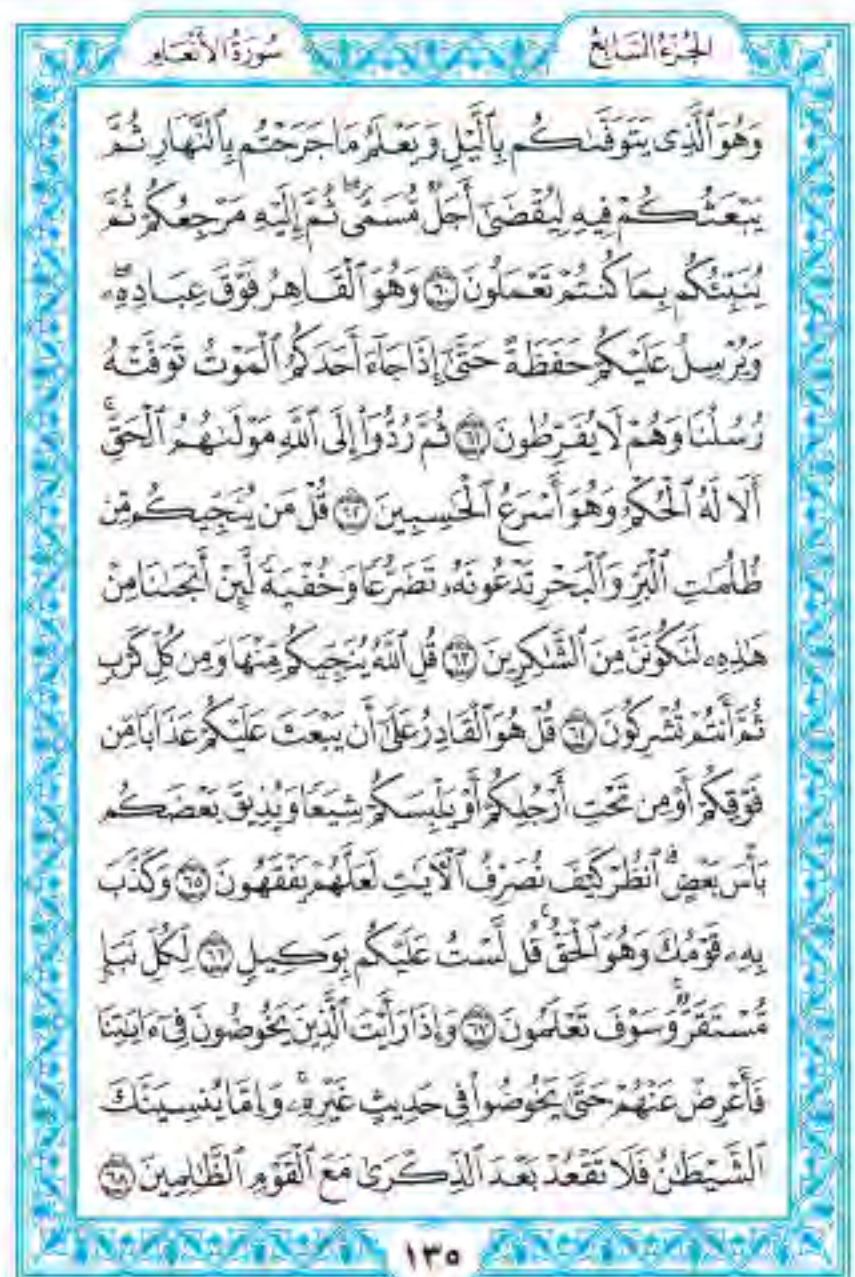 الجُزْءُ السَّابِعُ سُورَةُ الأَنْعَامِ
وَهُوَ ٱلَّذِى يَتَوَفَّىٰكُم بِٱلَّيْلِ وَيَعْلَمُ مَا جَرَحْتُم بِٱلنَّهَارِ ثُمَّ
يَبْعَثُكُمْ فِيهِ لِيُقْضَىٰٓ أَجَلٌ مُّسَمًّى ۖ ثُمَّ إِلَيْهِ مَرْجِعُكُمْ ثُمَّ
يُنَبِّئُكُم بِمَا كُنتُمْ تَعْمَلُونَ ٦٠ وَهُوَ ٱلْقَاهِرُ فَوْقَ عِبَادِهِۦ ۖ
وَيُرْسِلُ عَلَيْكُمْ حَفَظَةً حَتَّىٰٓ إِذَا جَآءَ أَحَدَكُمُ ٱلْمَوْتُ تَوَفَّتْهُ
رُسُلُنَا وَهُمْ لَا يُفَرِّطُونَ ٦١ ثُمَّ رُدُّوٓا۟ إِلَى ٱللَّهِ مَوْلَىٰهُمُ ٱلْحَقِّ ۚ
أَلَا لَهُ ٱلْحُكْمُ وَهُوَ أَسْرَعُ ٱلْحَٰسِبِينَ ٦٢ قُلْ مَن يُنَجِّيكُم مِّن
ظُلُمَٰتِ ٱلْبَرِّ وَٱلْبَحْرِ تَدْعُونَهُۥ تَضَرُّعًا وَخُفْيَةً لَّئِنْ أَنجَىٰنَا مِنْ
هَٰذِهِۦ لَنَكُونَنَّ مِنَ ٱلشَّٰكِرِينَ ٦٣ قُلِ ٱللَّهُ يُنَجِّيكُم مِّنْهَا وَمِن كُلِّ كَرْبٍ
ثُمَّ أَنتُمْ تُشْرِكُونَ ٦٤ قُلْ هُوَ ٱلْقَادِرُ عَلَىٰٓ أَن يَبْعَثَ عَلَيْكُمْ عَذَابًا مِّن
فَوْقِكُمْ أَوْ مِن تَحْتِ أَرْجُلِكُمْ أَوْ يَلْبِسَكُمْ شِيَعًا وَيُذِيقَ بَعْضَكُم
بَأْسَ بَعْضٍ ۗ ٱنظُرْ كَيْفَ نُصَرِّفُ ٱلْءَايَٰتِ لَعَلَّهُمْ يَفْقَهُونَ ٦٥ وَكَذَّبَ
بِهِۦ قَوْمُكَ وَهُوَ ٱلْحَقُّ ۚ قُل لَّسْتُ عَلَيْكُم بِوَكِيلٍ ٦٦ لِّكُلِّ نَبَإٍ
مُّسْتَقَرٌّ ۚ وَسَوْفَ تَعْلَمُونَ ٦٧ وَإِذَا رَأَيْتَ ٱلَّذِينَ يَخُوضُونَ فِىٓ ءَايَٰتِنَا
فَأَعْرِضْ عَنْهُمْ حَتَّىٰ يَخُوضُوا۟ فِى حَدِيثٍ غَيْرِهِۦ ۚ وَإِمَّا يُنسِيَنَّكَ
ٱلشَّيْطَٰنُ فَلَا تَقْعُدْ بَعْدَ ٱلذِّكْرَىٰ مَعَ ٱلْقَوْمِ ٱلظَّٰلِمِينَ ٦٨
١٣٥